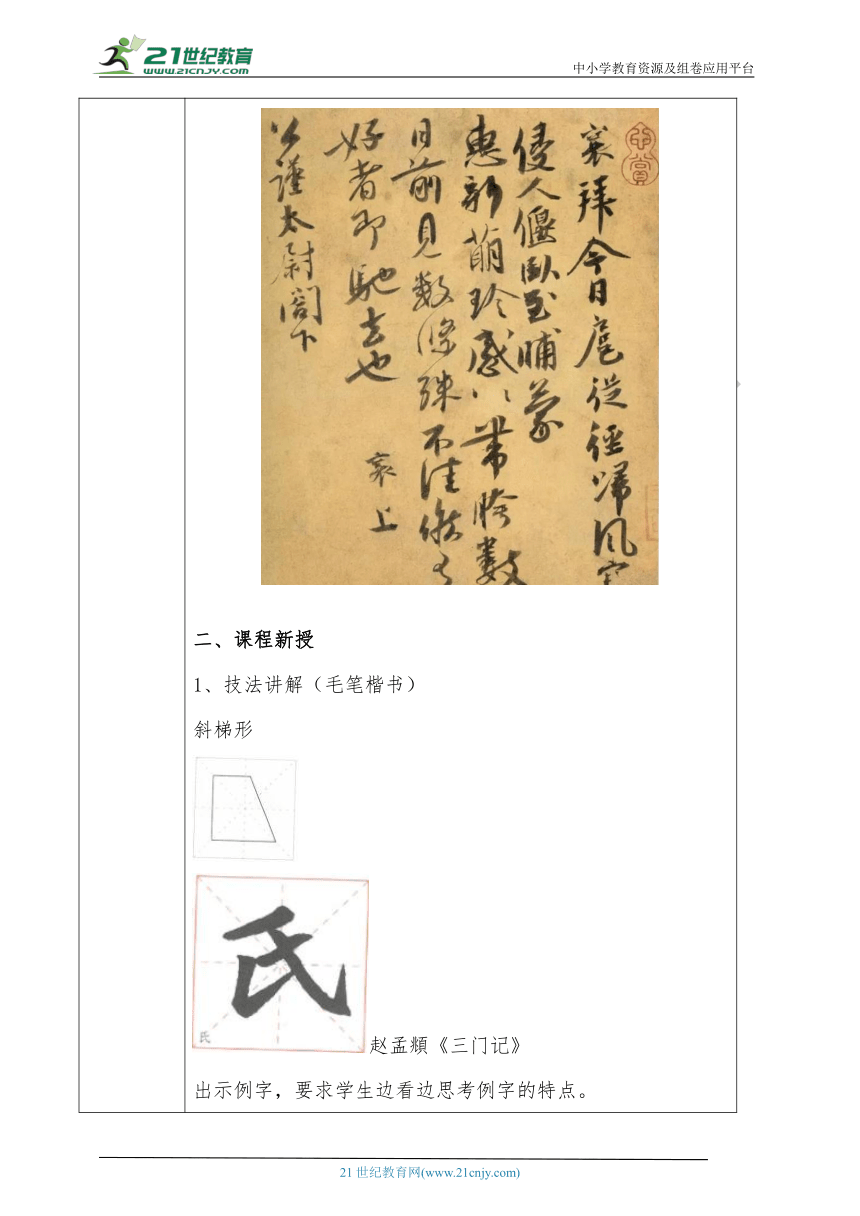 21世纪教育
WWW.21CNJY.COM
中小学教育资源及组卷应用平台
襄拜今日扈從徑歸風寒
侵人偃臥至晡蒙
惠新萌珍感以帶胯數
日前見數條殊不佳候有
好者即馳去也 襄上
公謹太尉閤下
二、课程新授
1、技法讲解（毛笔楷书）
斜梯形
氏
氏
赵孟頫《三门记》
出示例字，要求学生边看边思考例字的特点。
21世纪教育网(www.21cnjy.com)